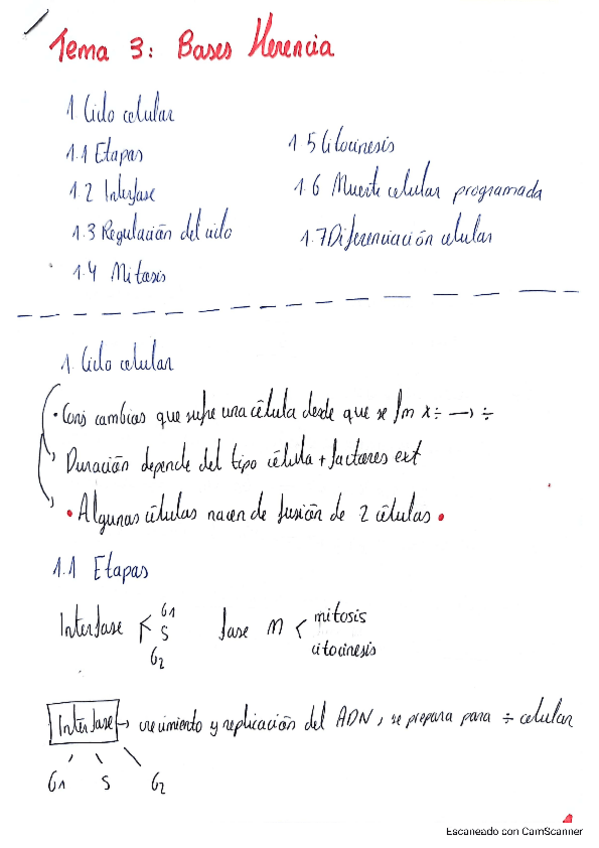 Tema 3: Bases Herencia
1 Ciclo celular
1.1 Etapas
1.2 Interfase
1.3 Regulación del ciclo
1.4 Mitosis
1.5 Citocinesis
1.6 Muerte celular programada
1.7 Diferenciación celular
1. Ciclo celular
• Conj cambios que sufre una célula desde que se fm x ÷ → ÷
Duración depende del tipo célula + factores ext
• Algunas células nacen de fusión de 2 células.
1.1 Etapas
Interfase < G1 S G2 fase M < mitosis citocinesis
Interfase → crecimiento y replicación del ADN, se prepara para ÷ celular
G1 S G2
Escaneado con CamScanner